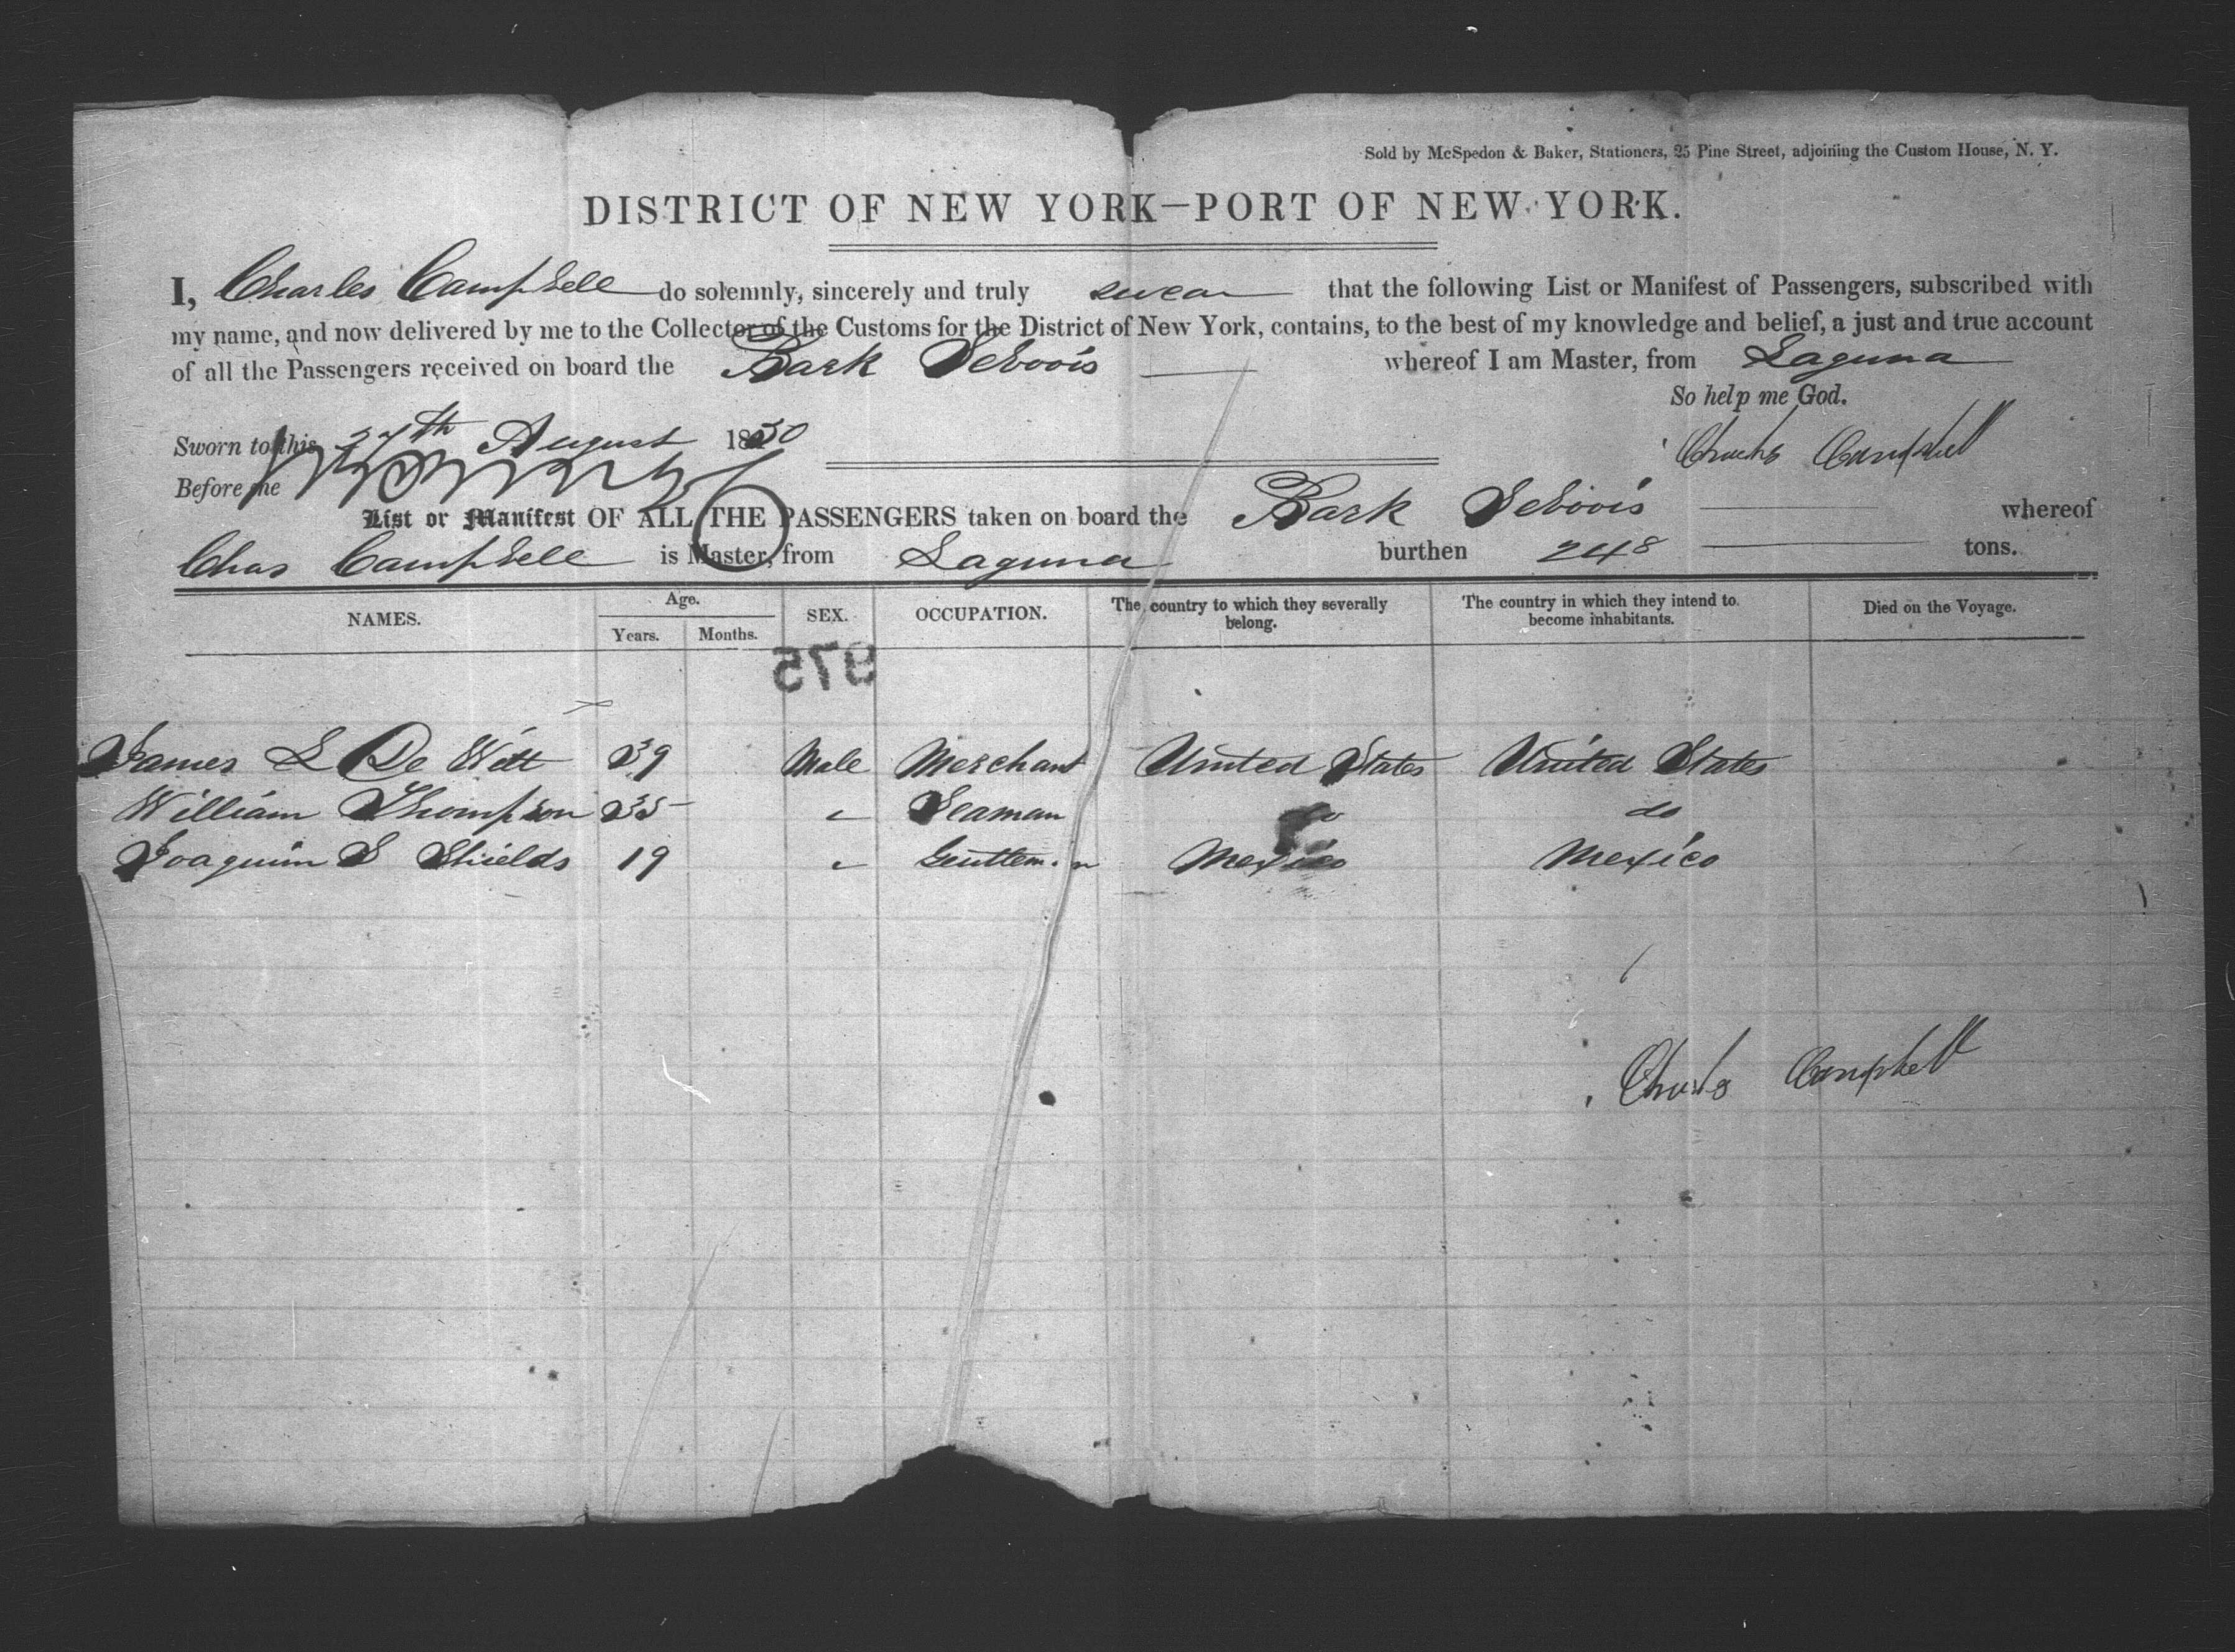 Sold by McSpedon & Baker, Stationers, 25 Pine Street, adjoining the Custom House, N. Y.
DISTRICT OF NEW YORK—PORT OF NEW YORK.
I, Charles Campbell do solemnly, sincerely and truly swear that the following List or Manifest of Passengers, subscribed with
my name, and now delivered by me to the Collector of the Customs for the District of New York, contains, to the best of my knowledge and belief, a just and true account
of all the Passengers received on board the Bark Seboois whereof I am Master, from Laguna
So help me God.
Sworn to this 27th August 1850
Charles Campbell
Before me
List or Manifest OF ALL THE PASSENGERS taken on board the Bark Seboois whereof
Chas Campbell is Master, from Laguna burthen 248 tons.
NAMES. Age. Years. Months. SEX. OCCUPATION. The country to which they severally belong. The country in which they intend to become inhabitants. Died on the Voyage.
975
James L De Witt 39 Male Merchant United States United States
William Thompson 35 " Seaman do do
Joaquim S Shields 19 " Gentleman Mexico Mexico
Charles Campbell